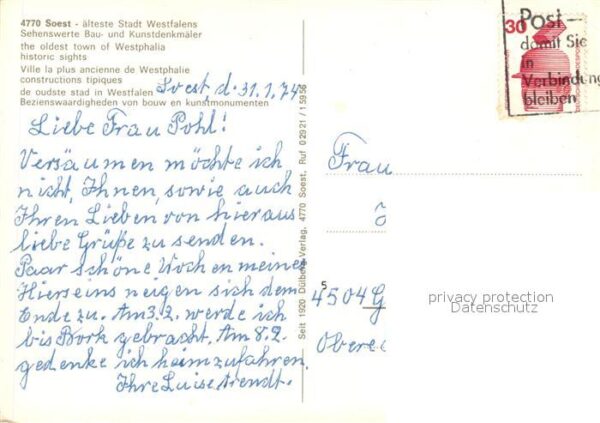 4770 Soest - älteste Stadt Westfalens
Sehenswerte Bau- und Kunstdenkmäler
the oldest town of Westphalia
historic sights
Ville la plus ancienne de Westphalie
constructions tipiques
de oudste stad in Westfalen
Bezienswaardigheden van bouw en kunstmonumenten
Soest, d. 31.1.74
Liebe Frau Pohl!
Versäumen möchte ich
nicht, Ihnen, sowie auch
Ihren Lieben von hieraus
liebe Grüße zu senden.
Paar schöne Wochen meines
Hierseins neigen sich dem
Ende zu. Am 3.2. werde ich
bis Bork gebracht. Am 8.2.
gedenke ich heimzufahren.
Ihre Luise Arendt.
Seit 1920 Dülberg Verlag, 4770 Soest, Ruf 02921/15956
30
DEUTSCHE BUNDESPOST
Post -
damit Sie
in
Verbindung
bleiben
Frau
4504 G
privacy protection
Datenschutz